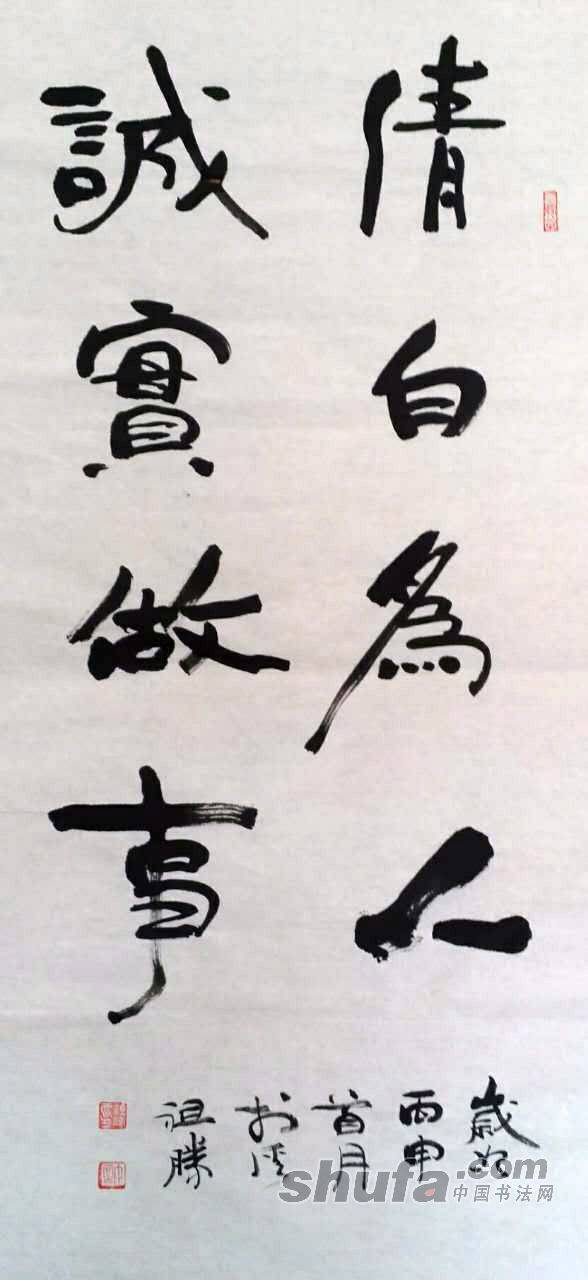 清白為人
誠實做事
歲次
丙申
首月
於漢
祖勝
shufa.com
中国书法网